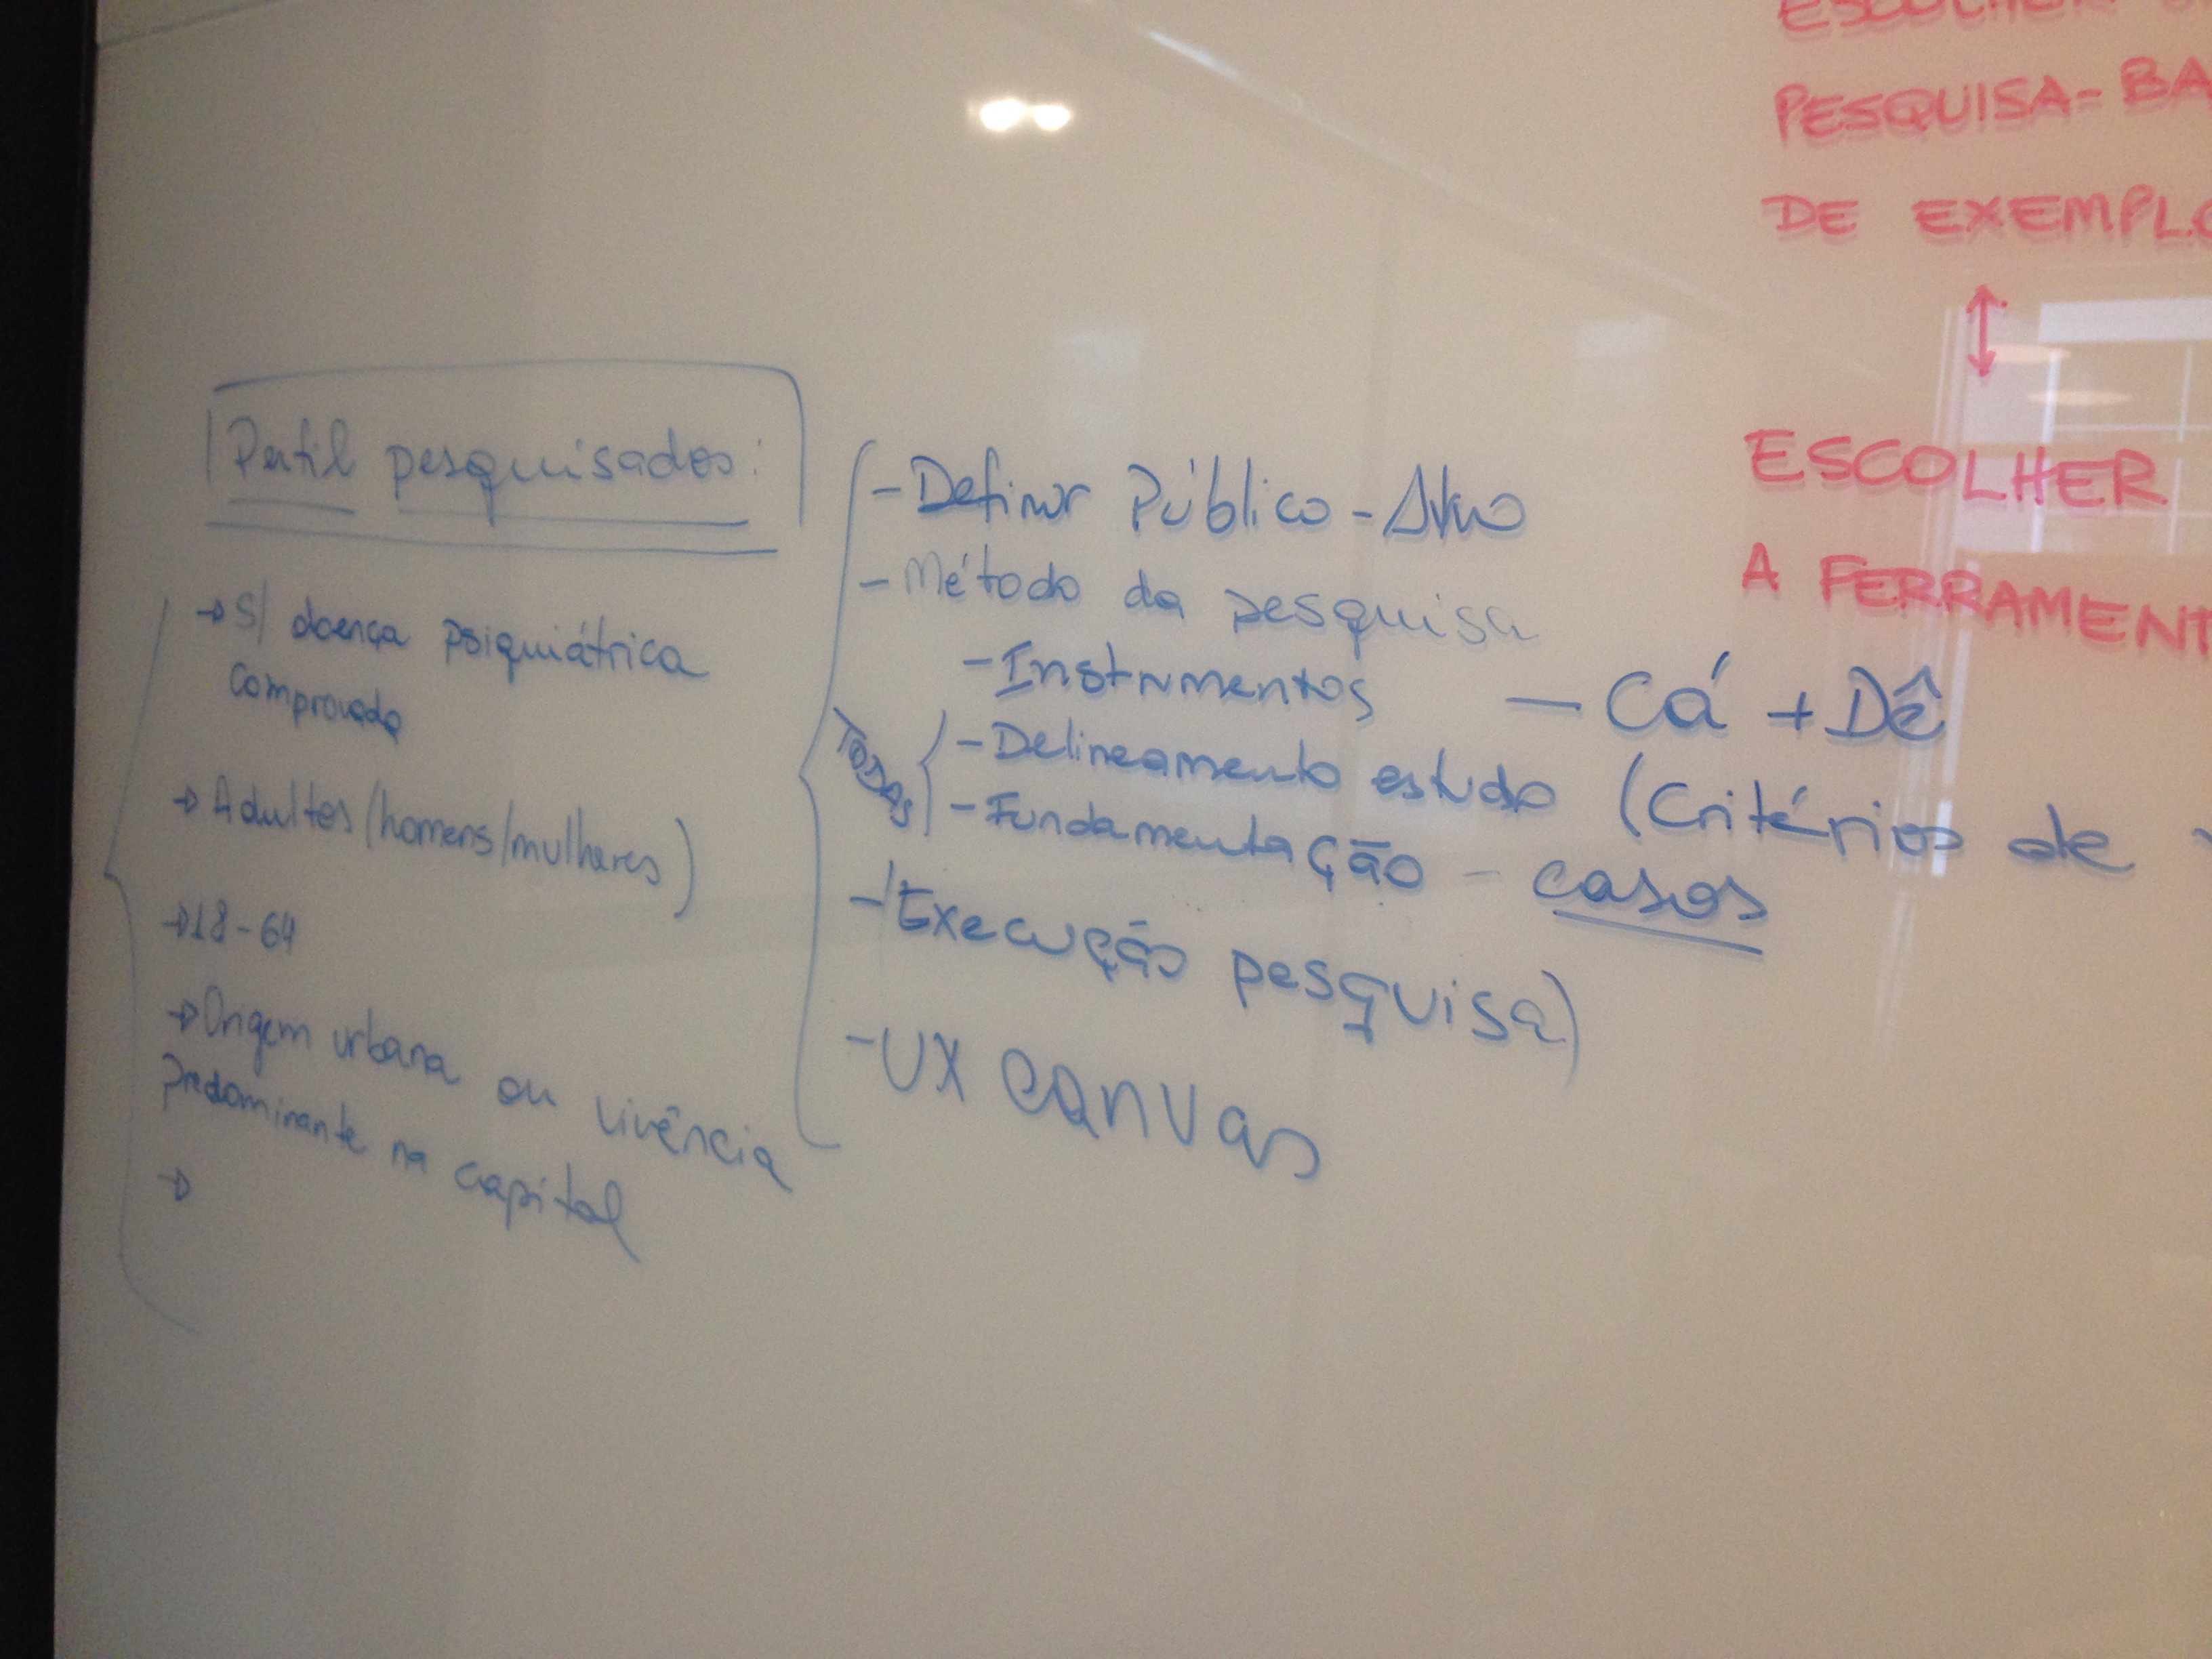 Perfil pesquisados:
→ S/ doença psiquiátrica
comprovada
→ Adultos (homens/mulheres)
→ 18-64
→ Origem urbana ou vivência
predominante na capital
→
- Definir Público-Alvo
- Método da pesquisa
- Instrumentos — Cá + Dê
TODAS
- Delineamento estudo (Critérios de
- Fundamentação - casos
- Execução pesquisa)
- UX canvas
ESCOLHER
PESQUISA-BA
DE EXEMPLO
↕
ESCOLHER
A FERRAMENT